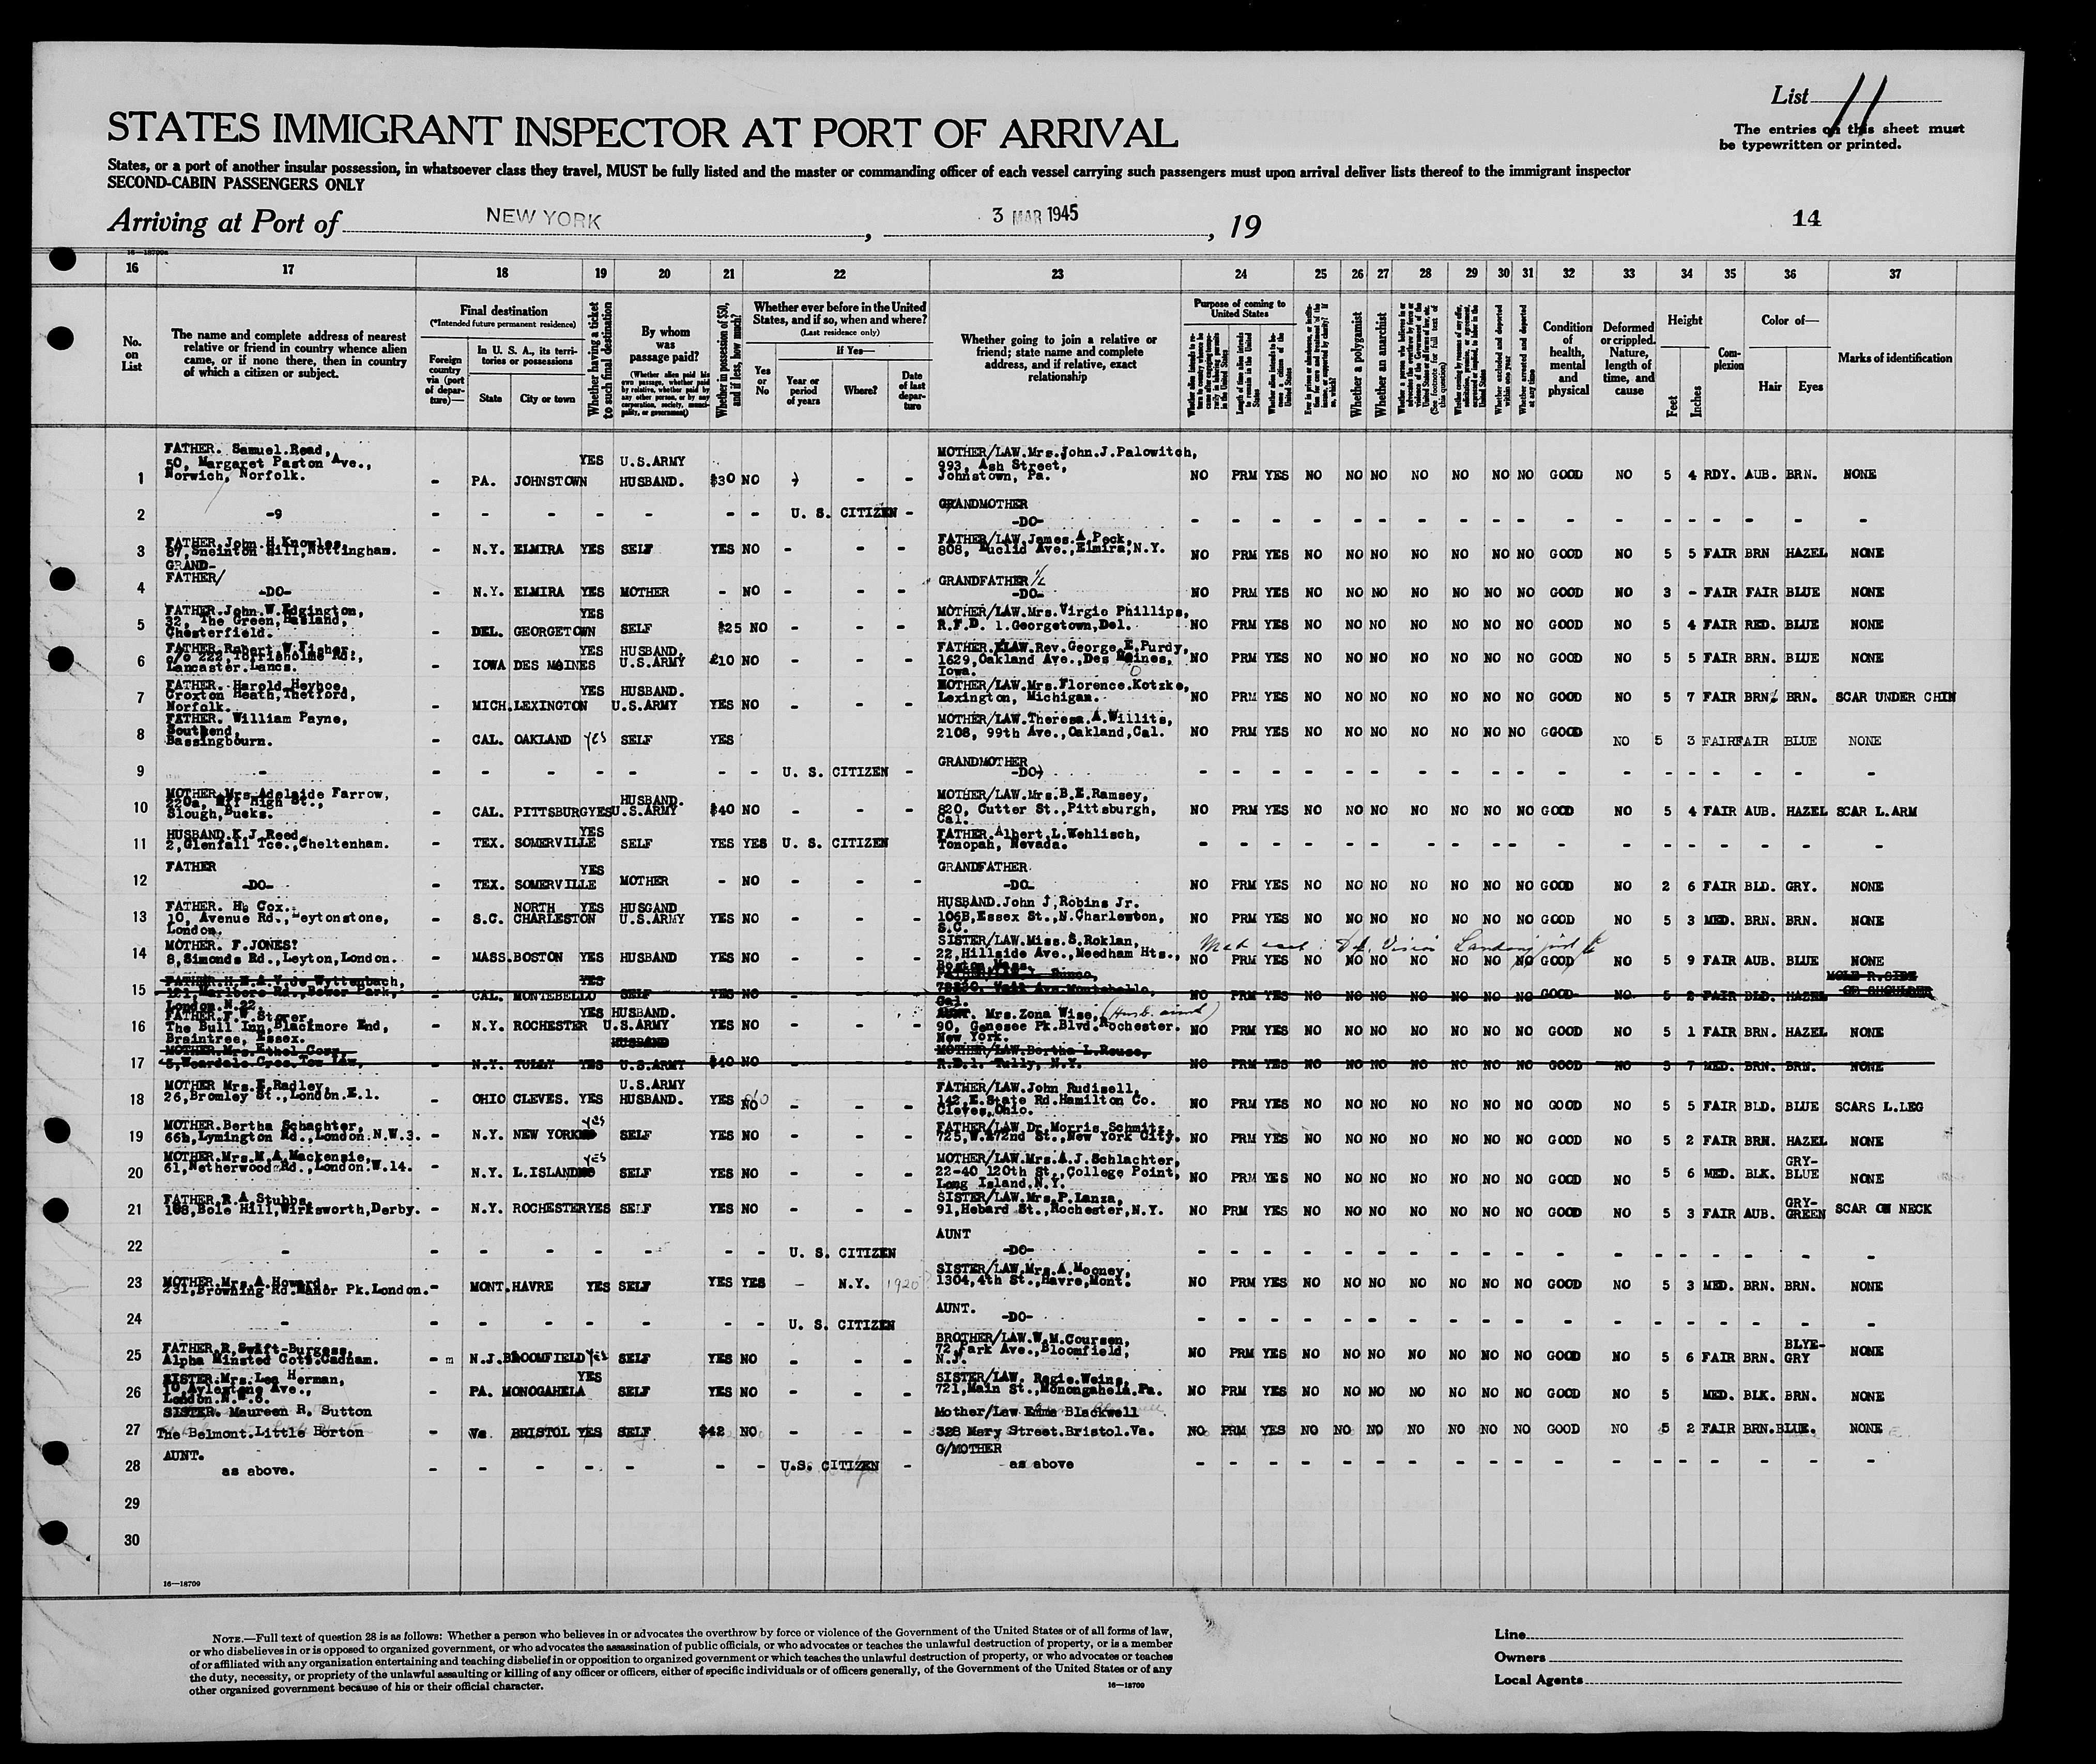 List 11
The entries on this sheet must
be typewritten or printed.
STATES IMMIGRANT INSPECTOR AT PORT OF ARRIVAL
States, or a port of another insular possession, in whatsoever class they travel, MUST be fully listed and the master or commanding officer of each vessel carrying such passengers must upon arrival deliver lists thereof to the immigrant inspector
SECOND-CABIN PASSENGERS ONLY
Arriving at Port of NEW YORK , 3 MAR 1945 , 19 14
16 17 18 19 20 21 22 23 24 25 26 27 28 29 30 31 32 33 34 35 36 37
No. on List
The name and complete address of nearest relative or friend in country whence alien came, or if none there, then in country of which a citizen or subject.
Final destination
(*Intended future permanent residence)
Foreign country via (port of departure)—
In U. S. A., its territories or possessions
State City or town
Whether having a ticket to such final destination
By whom was passage paid?
(Whether alien paid his own passage, whether paid by relative, whether paid by any other person, or by any corporation, society, municipality, or government)
Whether in possession of $50, and if less, how much?
Whether ever before in the United States, and if so, when and where?
(Last residence only)
Yes or No
If Yes—
Year or period of years
Where?
Date of last departure
Whether going to join a relative or friend; state name and complete address, and if relative, exact relationship
Purpose of coming to United States
Whether a polygamist
Whether an anarchist
Condition of health, mental and physical
Deformed or crippled. Nature, length of time, and cause
Height
Feet Inches
Complexion
Color of—
Hair Eyes
Marks of identification
1 FATHER. Samuel.Read, 50, Margaret Paston Ave., Norwich, Norfolk. - PA. JOHNSTOWN YES U.S.ARMY HUSBAND. $30 NO - - MOTHER/LAW.Mrs.John.J.Palowitch, 993, Ash Street, Johnstown, Pa. NO PRM YES NO NO NO NO NO NO NO GOOD NO 5 4 RDY. AUB. BRN. NONE
2 -9 - - - - - - - U. S. CITIZEN - GRANDMOTHER -DO- - - - - - - - - - - - - - - - - - -
3 FATHER.John.H.Knowles, 87, Sneinton Hill, Nottingham. - N.Y. ELMIRA YES SELF YES NO - - - FATHER/LAW.James.A.Peck, 808, Euclid Ave.,Elmira,N.Y. NO PRM YES NO NO NO NO NO NO NO GOOD NO 5 5 FAIR BRN HAZEL NONE
4 GRAND-FATHER/ -DO- - N.Y. ELMIRA YES MOTHER - NO - - - GRANDFATHER /L -DO- NO PRM YES NO NO NO NO NO NO NO GOOD NO 3 - FAIR FAIR BLUE NONE
5 FATHER.John.W.Edgington, 32, The Green, Hasland, Chesterfield. - DEL. GEORGETOWN YES SELF $25 NO - - - MOTHER/LAW.Mrs.Virgie Phillips, R.F.D. 1.Georgetown,Del. NO PRM YES NO NO NO NO NO NO NO GOOD NO 5 4 FAIR RED. BLUE NONE
6 FATHER.Robert W.Fisher, c/o 222, Torrisholme Rd., Lancaster.Lancs. - IOWA DES MOINES YES HUSBAND. U.S.ARMY £10 NO - - - FATHER.LAW.Rev.George.E.Purdy, 1629,Oakland Ave.,Des Moines, Iowa. NO PRM YES NO NO NO NO NO NO NO GOOD NO 5 5 FAIR BRN. BLUE NONE
7 FATHER. Harold.Heyhoe, Croxton Heath, Thetford, Norfolk. - MICH. LEXINGTON YES HUSBAND. U.S.ARMY YES NO - - - MOTHER/LAW.Mrs.Florence.Kotzke, Lexington, Michigan. NO PRM YES NO NO NO NO NO NO NO GOOD NO 5 7 FAIR BRN. BRN. SCAR UNDER CHIN
8 FATHER. William Payne, Southend, Bassingbourn. - CAL. OAKLAND yes SELF YES MOTHER/LAW.Theresa.A.Willits, 2108, 99th Ave.,Oakland,Cal. NO PRM YES NO NO NO NO NO NO NO GGOOD NO 5 3 FAIR FAIR BLUE NONE
9 - - - - - - - - U. S. CITIZEN - GRANDMOTHER -DO- - - - - - - - - - - - - - - - - - -
10 MOTHER.Mrs.Adelaide Farrow, 220a, High St., Slough,Bucks. - CAL. PITTSBURG YES HUSBAND. U.S.ARMY $40 NO - - - MOTHER/LAW.Mrs.B.E.Ramsey, 820, Cutter St.,Pittsburgh, Cal. NO PRM YES NO NO NO NO NO NO NO GOOD NO 5 4 FAIR AUB. HAZEL SCAR L.ARM
11 HUSBAND.K.J.Reed, 2,Glenfall Tce.,Cheltenham. - TEX. SOMERVILLE YES SELF YES YES U. S. CITIZEN FATHER.Albert.L.Wehlisch, Tonopah, Nevada. - - - - - - - - - - - - - - - - - -
12 FATHER -DO- - TEX. SOMERVILLE YES MOTHER - NO - - - GRANDFATHER. -DO- NO PRM YES NO NO NO NO NO NO NO GOOD NO 2 6 FAIR BLD. GRY. NONE
13 FATHER. H. Cox. 10, Avenue Rd.,Leytonstone, London. - S.C. NORTH CHARLESTON YES HUSGAND U.S.ARMY YES NO - - - HUSBAND.John J.Robins Jr. 106B,Essex St.,N.Charleston, S.C. NO PRM YES NO NO NO NO NO NO NO GOOD NO 5 3 MED. BRN. BRN. NONE
14 MOTHER. F.JONES? 8,Simonds Rd.,Leyton,London. - MASS. BOSTON YES HUSBAND YES NO - - - SISTER/LAW.Miss.S.Roklan, 22,Hillside Ave.,Needham Hts., Boston Mass. NO PRM YES NO NO NO NO NO NO NO GOOD NO 5 9 FAIR AUB. BLUE NONE
15 FATHER.H.E.A.V.de Wyttenbach, 121, Marlboro Rd.,Bowes Park, London.N.22. - CAL. MONTEBELLO YES SELF YES NO - - Montebello, Cal. NO PRM YES NO NO NO NO NO NO NO GOOD NO 5 2 FAIR BLD. HAZEL MOLE R.SIDE OF SHOULDER
16 FATHER.F.W.Storer, The Bull Inn,Blackmore End, Braintree, Essex. - N.Y. ROCHESTER YES HUSBAND. U.S.ARMY YES NO - - - Mrs.Zona Wise, (Husb. aunt) 90, Genesee Pk.Blvd.Rochester. New York. NO PRM YES NO NO NO NO NO NO NO GOOD NO 5 1 FAIR BRN. HAZEL NONE
17 MOTHER.Mrs.Ethel Corr, N.Y. TULLY YES HUSBAND U.S.ARMY $40 NO MOTHER/LAW.Bertha L.Rouse, R.D.1. Tully, N.Y. NO PRM YES NO NO NO NO NO NO NO GOOD NO 5 7 MED. BRN. BRN. NONE
18 MOTHER Mrs.E.Radley, 26,Bromley St.,London.E.1. - OHIO CLEVES. YES U.S.ARMY HUSBAND. YES NO - - - FATHER/LAW.John Rudisell, 142,E.State Rd.Hamilton Co. Cleves,Ohio. NO PRM YES NO NO NO NO NO NO NO GOOD NO 5 5 FAIR BLD. BLUE SCARS L.LEG
19 MOTHER.Bertha Schachter, 66b,Lymington Rd.,London.N.W.3. - N.Y. NEW YORK yes SELF YES NO - - - FATHER/LAW Dr.Morris Schmitz, 725,W.172nd St.,New York City. NO PRM YES NO NO NO NO NO NO NO GOOD NO 5 2 FAIR BRN. HAZEL NONE
20 MOTHER.Mrs.M.A.Mackensie, 61,Netherwood Rd.,London.W.14. - N.Y. L.ISLAND yes SELF YES NO - - - MOTHER/LAW.Mrs.A.J.Schlachter, 22-40 120th St.,College Point, Long Island.N.Y. NO PRM YES NO NO NO NO NO NO NO GOOD NO 5 6 MED. BLK. GRY-BLUE NONE
21 FATHER.R.A.Stubbs, 168,Bole Hill,Wirksworth,Derby. - N.Y. ROCHESTER YES SELF YES NO - - - SISTER/LAW.Mrs.P.Lanza, 91,Hebard St.,Rochester,N.Y. NO PRM YES NO NO NO NO NO NO NO GOOD NO 5 3 FAIR AUB. GRY-GREEN SCAR ON NECK
22 - - - - - - - - U. S. CITIZEN AUNT -DO- - - - - - - - - - - - - - - - - - -
23 MOTHER.Mrs.A.Howard, 231,Browning Rd.Manor Pk.London. - MONT. HAVRE YES SELF YES YES - N.Y. 1920? SISTER/LAW.Mrs.A.Mooney, 1304,4th St.,Havre,Mont. NO PRM YES NO NO NO NO NO NO NO GOOD NO 5 3 MED. BRN. BRN. NONE
24 - - - - - - - - U. S. CITIZEN AUNT. -DO- - - - - - - - - - - - - - - - - - -
25 FATHER.R.Swift-Burgess, Alpha Minsted Cott.Cadnam. - m N.J. BLOOMFIELD yes SELF YES NO - - - BROTHER/LAW.W.M.Coursen, 72,Park Ave.,Bloomfield, N.J. NO PRM YES NO NO NO NO NO NO NO GOOD NO 5 6 FAIR BRN. BLYE-GRY NONE
26 SISTER.Mrs.Lea Herman, 10,Aylestone Ave., London.N.W.6. - PA. MONOGAHELA YES SELF YES NO - - - SISTER/LAW. Regie.Weins, 721,Main St.,Monongahela.Pa. NO PRM YES NO NO NO NO NO NO NO GOOD NO 5 MED. BLK. BRN. NONE
27 SISTER. Maureen R. Sutton The Belmont.Little Horton - Va BRISTOL YES SELF $42 NO - - - Mother/Law Emma Blackwell 328 Mary Street.Bristol.Va. NO PRM YES NO NO NO NO NO NO NO GOOD NO 5 2 FAIR BRN. BLUE. NONE
28 AUNT. as above. - - - - - - - U.S. CITIZEN - G/MOTHER as above - - - - - - - - - - - - - - - - - -
29
30
16—18709
NOTE.—Full text of question 28 is as follows: Whether a person who believes in or advocates the overthrow by force or violence of the Government of the United States or of all forms of law,
or who disbelieves in or is opposed to organized government, or who advocates the assassination of public officials, or who advocates or teaches the unlawful destruction of property, or is a member
of or affiliated with any organization entertaining and teaching disbelief in or opposition to organized government or which teaches the unlawful destruction of property, or who advocates or teaches
the duty, necessity, or propriety of the unlawful assaulting or killing of any officer or officers, either of specific individuals or of officers generally, of the Government of the United States or of any
other organized government because of his or their official character.
16—18709
Line
Owners
Local Agents